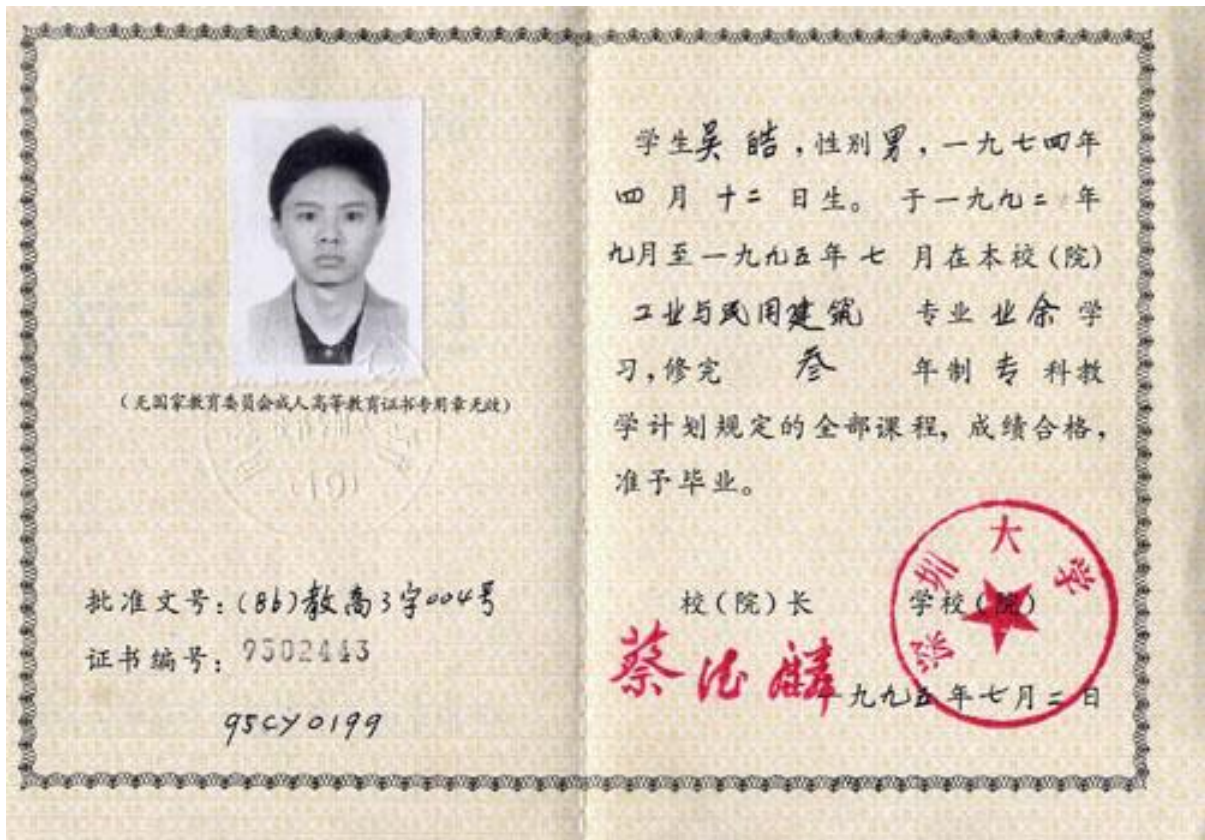 （无国家教育委员会成人高等教育证书专用章无效）
批准文号：(86)教高3字004号
证书编号：9502443
95CY0199
学生吴皓，性别男，一九七四年
四月十二日生。于一九九二年
九月至一九九五年七月在本校（院）
工业与民用建筑 专业业余学
习，修完 叁 年制专科教
学计划规定的全部课程，成绩合格，
准予毕业。
校（院）长 学校（院）
蔡德麟
深圳大学
一九九五年七月二日